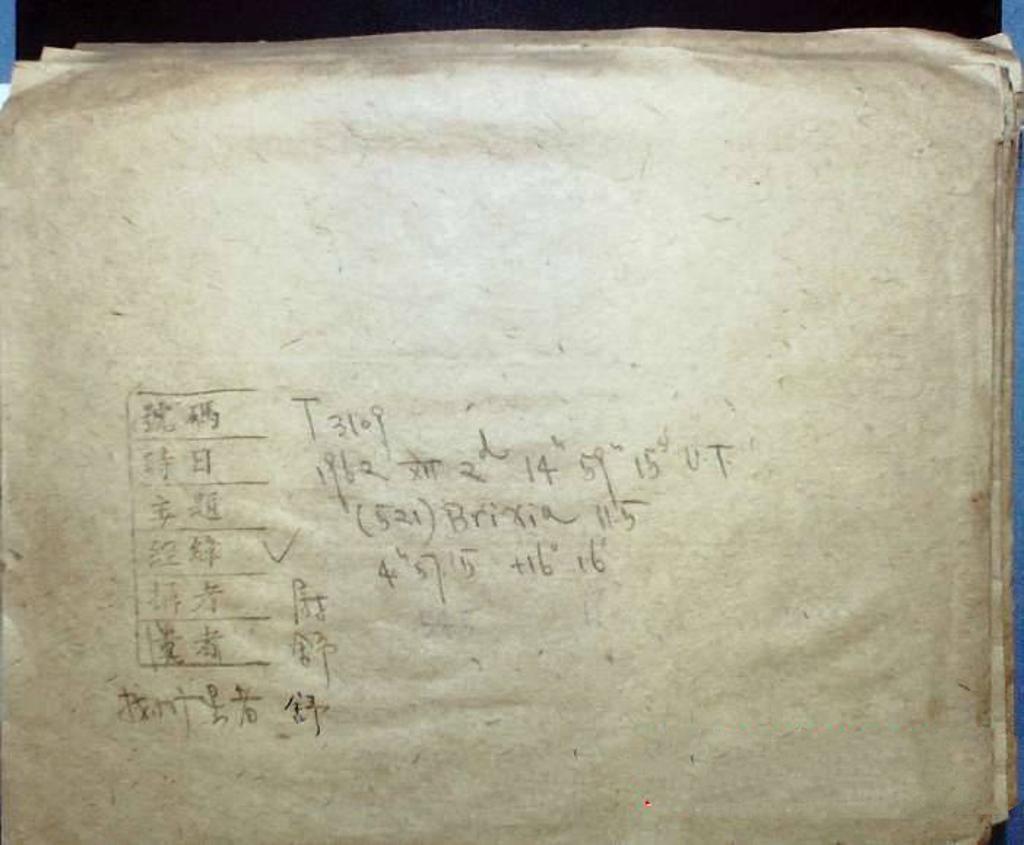 號碼 T 3109
時日 1962 XII 2d 14h 59m 15s UT
主題 (521) Brixia 11.5
經緯 ✓ 4h 57m.5 +16° 16'
攝者
覽者 舒
找小行星者 舒